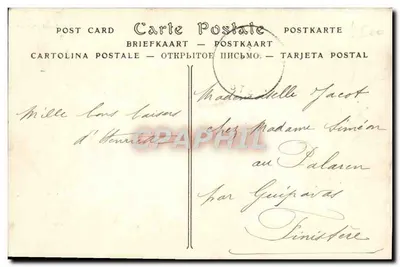 POST CARD Carte Postale POSTKARTE
BRIEFKAART — POSTKAART
CARTOLINA POSTALE — ОТКРЫТОЕ ПИСЬМО — TARJETA POSTAL
Mille bons baisers
d'Henriette
Mademoiselle Jacot
chez Madame Siméon
au Palaren
par Guipavas
Finistère
CPAPHIL